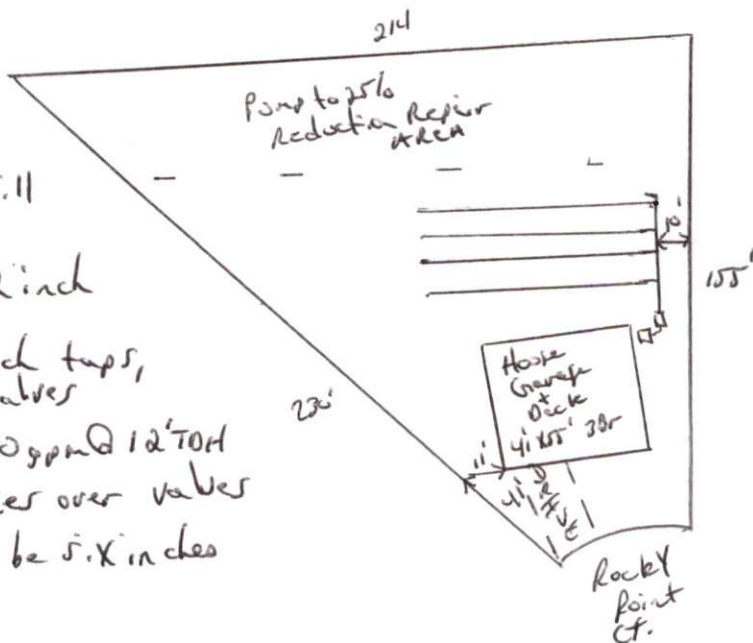 214
Pump to 25%
Reduction Repair
AREA
inch
ch taps,
valves
gpm @ 12' TDH
over valves
be six inches
10'
155'
230'
House
Garage
+
Deck
41 X 55' 3Br
11'
41'
DRIVE
Rocky
Point
Ct.